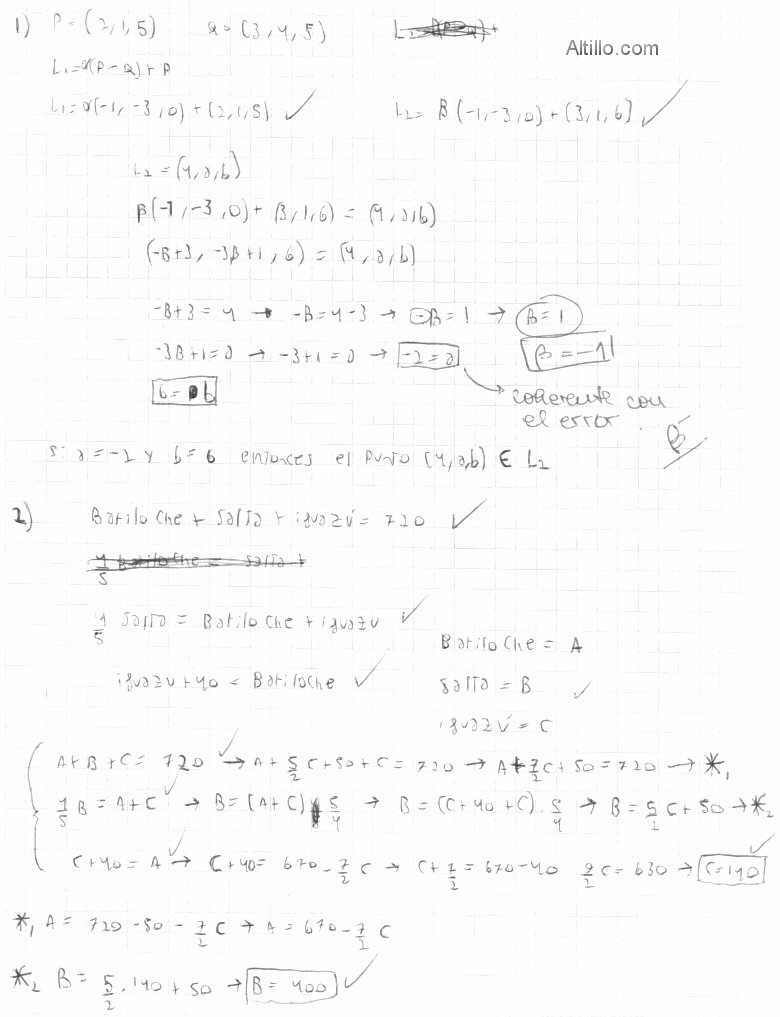 1) P = (2,1,5) Q = (3,4,5)
Altillo.com
L₁ = α(P-Q) + P
L₁ = α(-1,-3,0) + (2,1,5) ✓ L₂ = β(-1,-3,0) + (3,1,6) ✓
L₂ = (4,a,b)
β(-1,-3,0) + (3,1,6) = (4,a,b)
(-β+3, -3β+1, 6) = (4,a,b)
-β+3 = 4 → -β = 4-3 → -β = 1 → β = 1
-3β+1 = a → -3+1 = a → -2 = a β = -1
6 = b
coherente con
el error.
B-
si a = -2 y b = 6 entonces el punto (4,a,b) ∈ L₂
2) Bariloche + salta + iguazú = 720 ✓
4/5 Bariloche = salta +
4/5 salta = Bariloche + iguazu ✓
Bariloche = A
iguazu + 40 = Bariloche ✓
salta = B ✓
iguazú = C
A + B + C = 720 ✓ → A + 5/2 C + 50 + C = 720 → A + 7/2 C + 50 = 720 → *₁
4/5 B = A + C ✓ → B = (A+C) 5/4 → B = (C+40+C) . 5/4 → B = 5/2 C + 50 → *₂
C + 40 = A ✓ → C + 40 = 670 - 7/2 C → C + 7/2 = 670 - 40 9/2 C = 630 → C = 140 ✓
*₁ A = 720 - 50 - 7/2 C → A = 670 - 7/2 C
*₂ B = 5/2 . 140 + 50 → B = 400 ✓